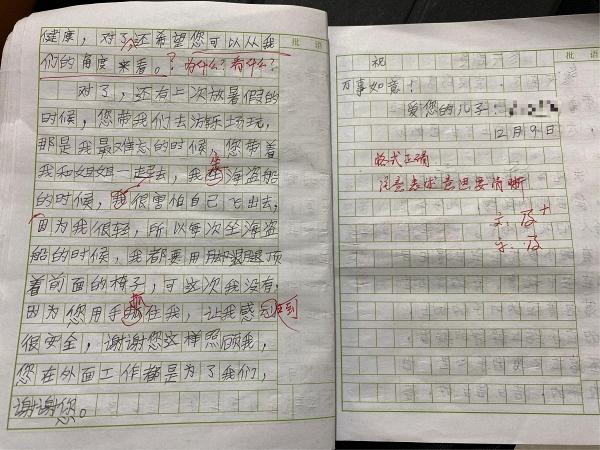 健康，对了还希望您可以从我
们的角度来看。？为什么？看什么？
对了，还有上次放暑假的
时候，您带我们去游乐场玩，
那是我最难忘的时候，您带着
我和姐姐一起去，我坐海盗船
的时候，我很害怕自己飞出去，
因为我很轻，所以每次坐海盗
船的时候，我都要用脚腿顶
着前面的椅子，可这次我没有，
因为您用手抓住我，让我感觉到
很安全，谢谢您这样照顾我，
您在外面工作都是为了我们，
谢谢您。
批语
祝
万事如意！
爱您的儿子：
12月9日
格式正确
注意表述意思要清晰
文：及+
字：及
批语